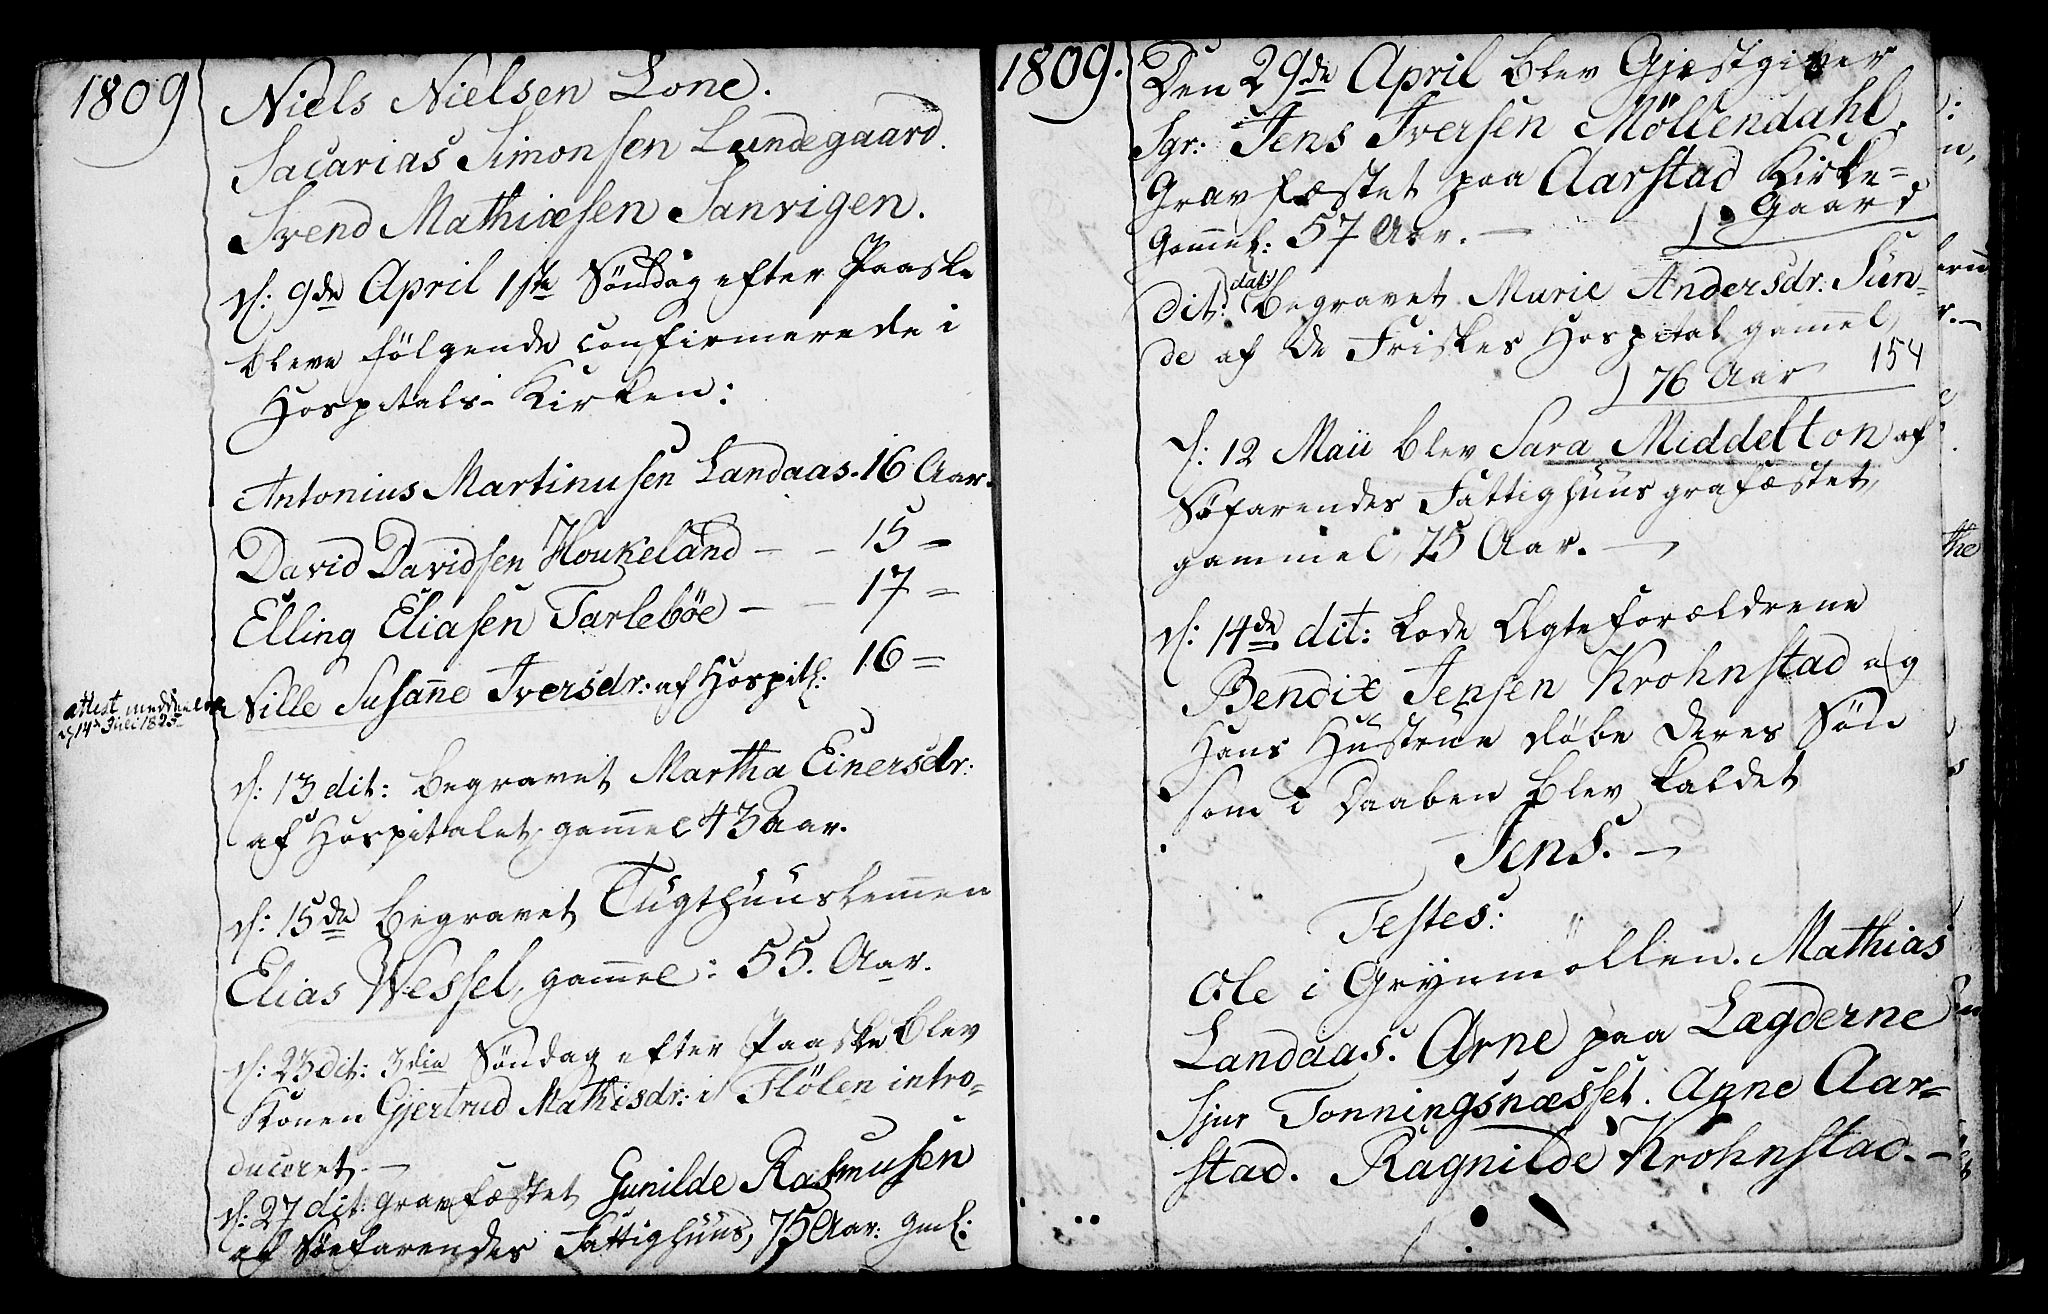 1809
Niels Nielsen Lone.
Sacarias Simonsen Lundegaard.
Svend Mathiæsen Sanvigen.
d: 9de April 1ste Söndag efter Paaske
bleve følgende confirmerede i
Hospitals-Kirken:
Antonius Martinusen Landaas. 16 Aar.
David Davidsen Houkeland - - 15 =
Elling Eliasen Tarlebøe - - 17 =
Nille Susanne Iversdr: af Hospitl: 16 =
attest meddeelt
d 14de Juli 1825
d: 13 dit: begravet Martha Einersdr:
af Hospitalet, gammel 43 Aar.
d: 15de begravet Tugthuuslemmen
Elias Wessel, gammel: 55. Aar.
d: 23 dit: 3die Söndag efter Paaske blev
Konen Gjertrud Mathisdr: i Flölen intro-
duceret. -
d: 27 dit: Gravfæstet Gunilde Rasmusen
af Søefarendes Fattighuus, 75 Aar: gml:
1809.
Den 29de April blev Gjestgiver
Sgr: Jens Iversen Möllendahl.
Gravfæstet paa Aarstad Kirke=
Gaard
Gammel: 57 Aar. -
dit: dat: begravet Marie Andersdr: Sun-
de af de Friskes Hospital gammel
76 Aar 154
d: 12 Maii blev Sara Middelton af
Søfarendes Fattighuus grafæstet,
gammel, 75 Aar. -
d: 14de dit: Lode Ægteforældrene
Bendix Jensen Krohnstad og
Hans Hustrue døbe deres Søn
som i Daaben blev kaldet
Jens. -
Testes:
Ole i Grynmöllen. Mathias
Landaas. Arne paa Lægderne
Sjur Tonningsnæsset. Anne Aar=
stad. Ragnilde Krohnstad. -